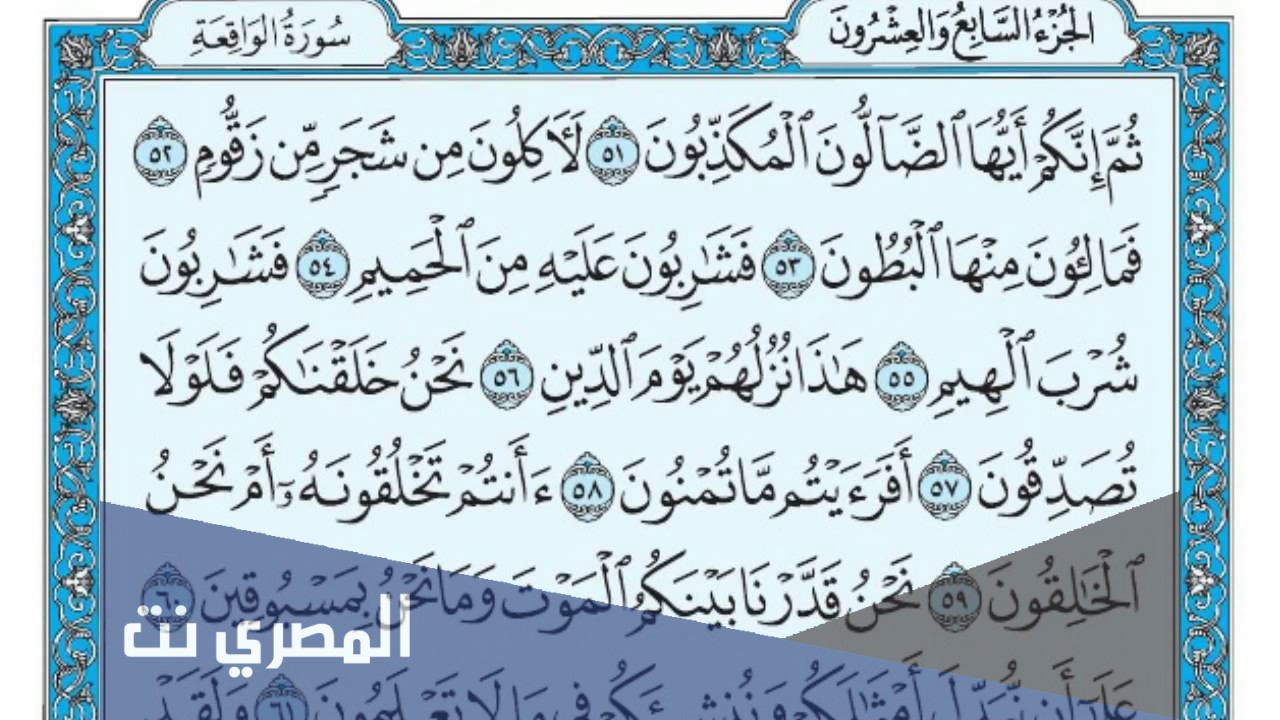 الجُزْءُ السَّابِعُ وَالعِشْرُونَ
سُورَةُ الوَاقِعَةِ
ثُمَّ إِنَّكُمْ أَيُّهَا ٱلضَّآلُّونَ ٱلْمُكَذِّبُونَ ٥١ لَـَٔاكِلُونَ مِن شَجَرٍ مِّن زَقُّومٍ ٥٢
فَمَالِـُٔونَ مِنْهَا ٱلْبُطُونَ ٥٣ فَشَٰرِبُونَ عَلَيْهِ مِنَ ٱلْحَمِيمِ ٥٤ فَشَٰرِبُونَ
شُرْبَ ٱلْهِيمِ ٥٥ هَٰذَا نُزُلُهُمْ يَوْمَ ٱلدِّينِ ٥٦ نَحْنُ خَلَقْنَٰكُمْ فَلَوْلَا
تُصَدِّقُونَ ٥٧ أَفَرَءَيْتُم مَّا تُمْنُونَ ٥٨ ءَأَنتُمْ تَخْلُقُونَهُۥٓ أَمْ نَحْنُ
ٱلْخَٰلِقُونَ ٥٩ نَحْنُ قَدَّرْنَا بَيْنَكُمُ ٱلْمَوْتَ وَمَا نَحْنُ بِمَسْبُوقِينَ ٦٠
عَلَىٰٓ أَن نُّبَدِّلَ أَمْثَٰلَكُمْ وَنُنشِئَكُمْ فِى مَا لَا تَعْلَمُونَ ٦١ وَلَقَدْ
المصري نت